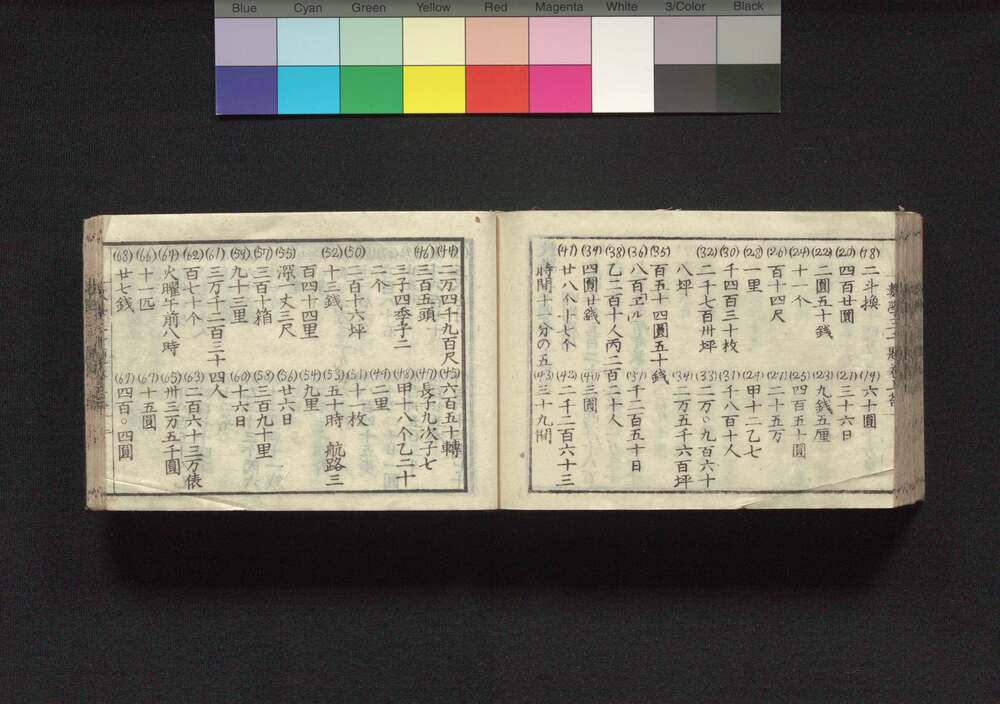 Blue Cyan Green Yellow Red Magenta White 3/Color Black
(18) 二斗換 (19) 六十圓
(20) 四百廿圓 (21) 三十六日
(22) 二圓五十錢 (23) 九錢五厘
(24) 十一个 (25) 四百五十圓
(26) 百十四尺 (27) 二十五万
(28) 一里 (29) 甲十二乙七
(30) 千四百三十枚 (31) 千八百十人
(32) 二千七百卅坪 (33) 二万〇九百六十
八坪 (34) 二万五千六百坪
(35) 百五十四圓五十錢
(36) 八百ヱル (37) 千二百五十日
(38) 乙二百十人丙二百二十人
(39) 四圓廿錢 (40) 三圓
(41) 廿八个十七个 (42) 二千二百六十三
時間十一分の五 (43) 三十九間
(44) 二万四千九百尺 (45) 六百五十轉
(46) 三百五頭 (47) 長子九次子七
三子四季子二 (48) 甲十八个乙二十
二个 (49) 二里
(50) 二百十六坪 (51) 十一枚
(52) 十三錢 (53) 五十時 航路三
百四十四里 (54) 九里
(55) 深一丈三尺 (56) 廿六日
(57) 三百十箱 (58) 三百九十里
(59) 九十三里 (60) 十六日
(61) 三万千二百三十四人
(62) 百七十个 (63) 二百六十三万俵
(64) 火曜午前八時 (65) 卅三万五千圓
(66) 十一匹 (67) 十五圓
(68) 廿七錢 (69) 四百〇四圓